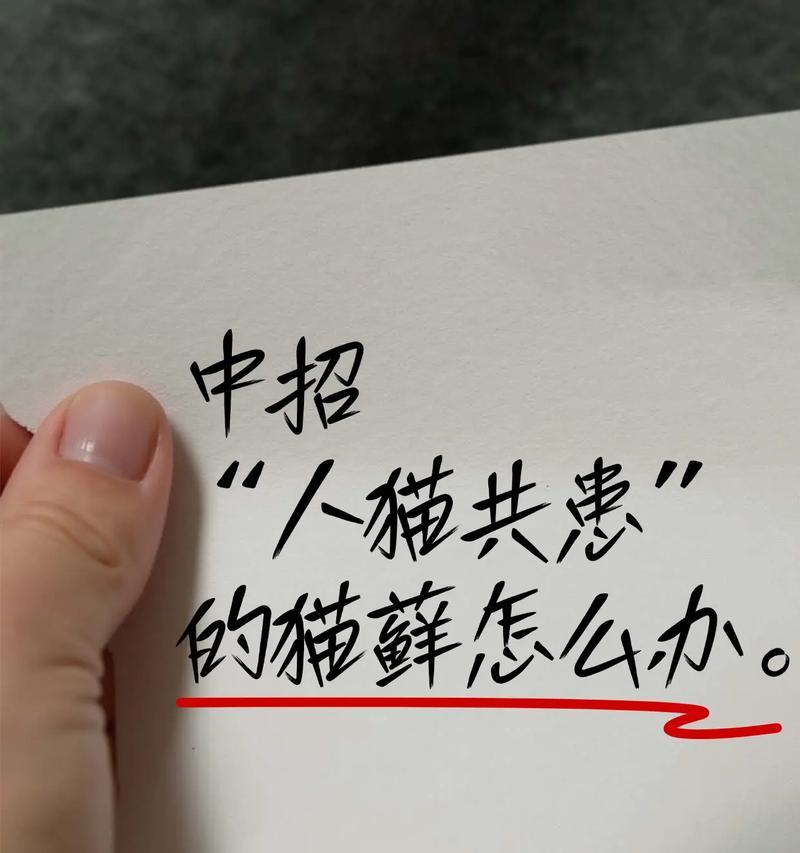 中招
“人猫共患”
的猫藓怎么办。